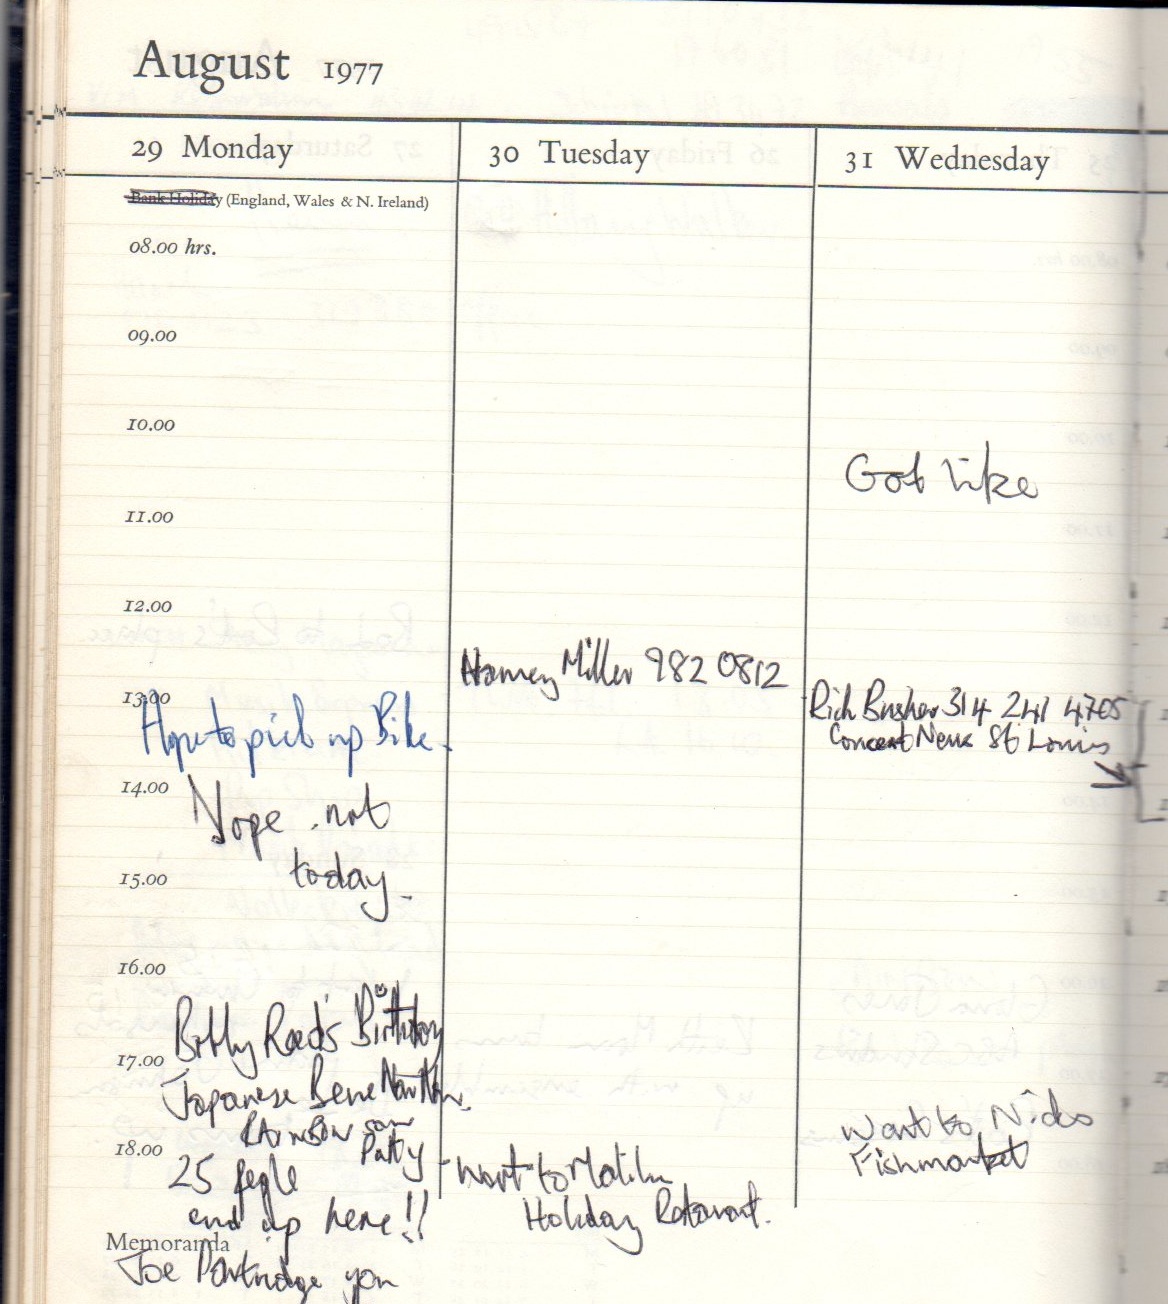 August 1977
29 Monday
Bank Holiday (England, Wales & N. Ireland)
08.00 hrs.
09.00
10.00
11.00
12.00
13.00
Hope to pick up Bike.
14.00
Nope not
today.
15.00
16.00
Birthday
17.00
Japanese
Rainbow
Party
18.00
25 people
end up here!!
Memoranda
Joe Partridge
30 Tuesday
Miller 982 0812
Went to
Holiday
31 Wednesday
Got
Rich 314 241 4705
Concert News St Louis
Went to
Fishmarket